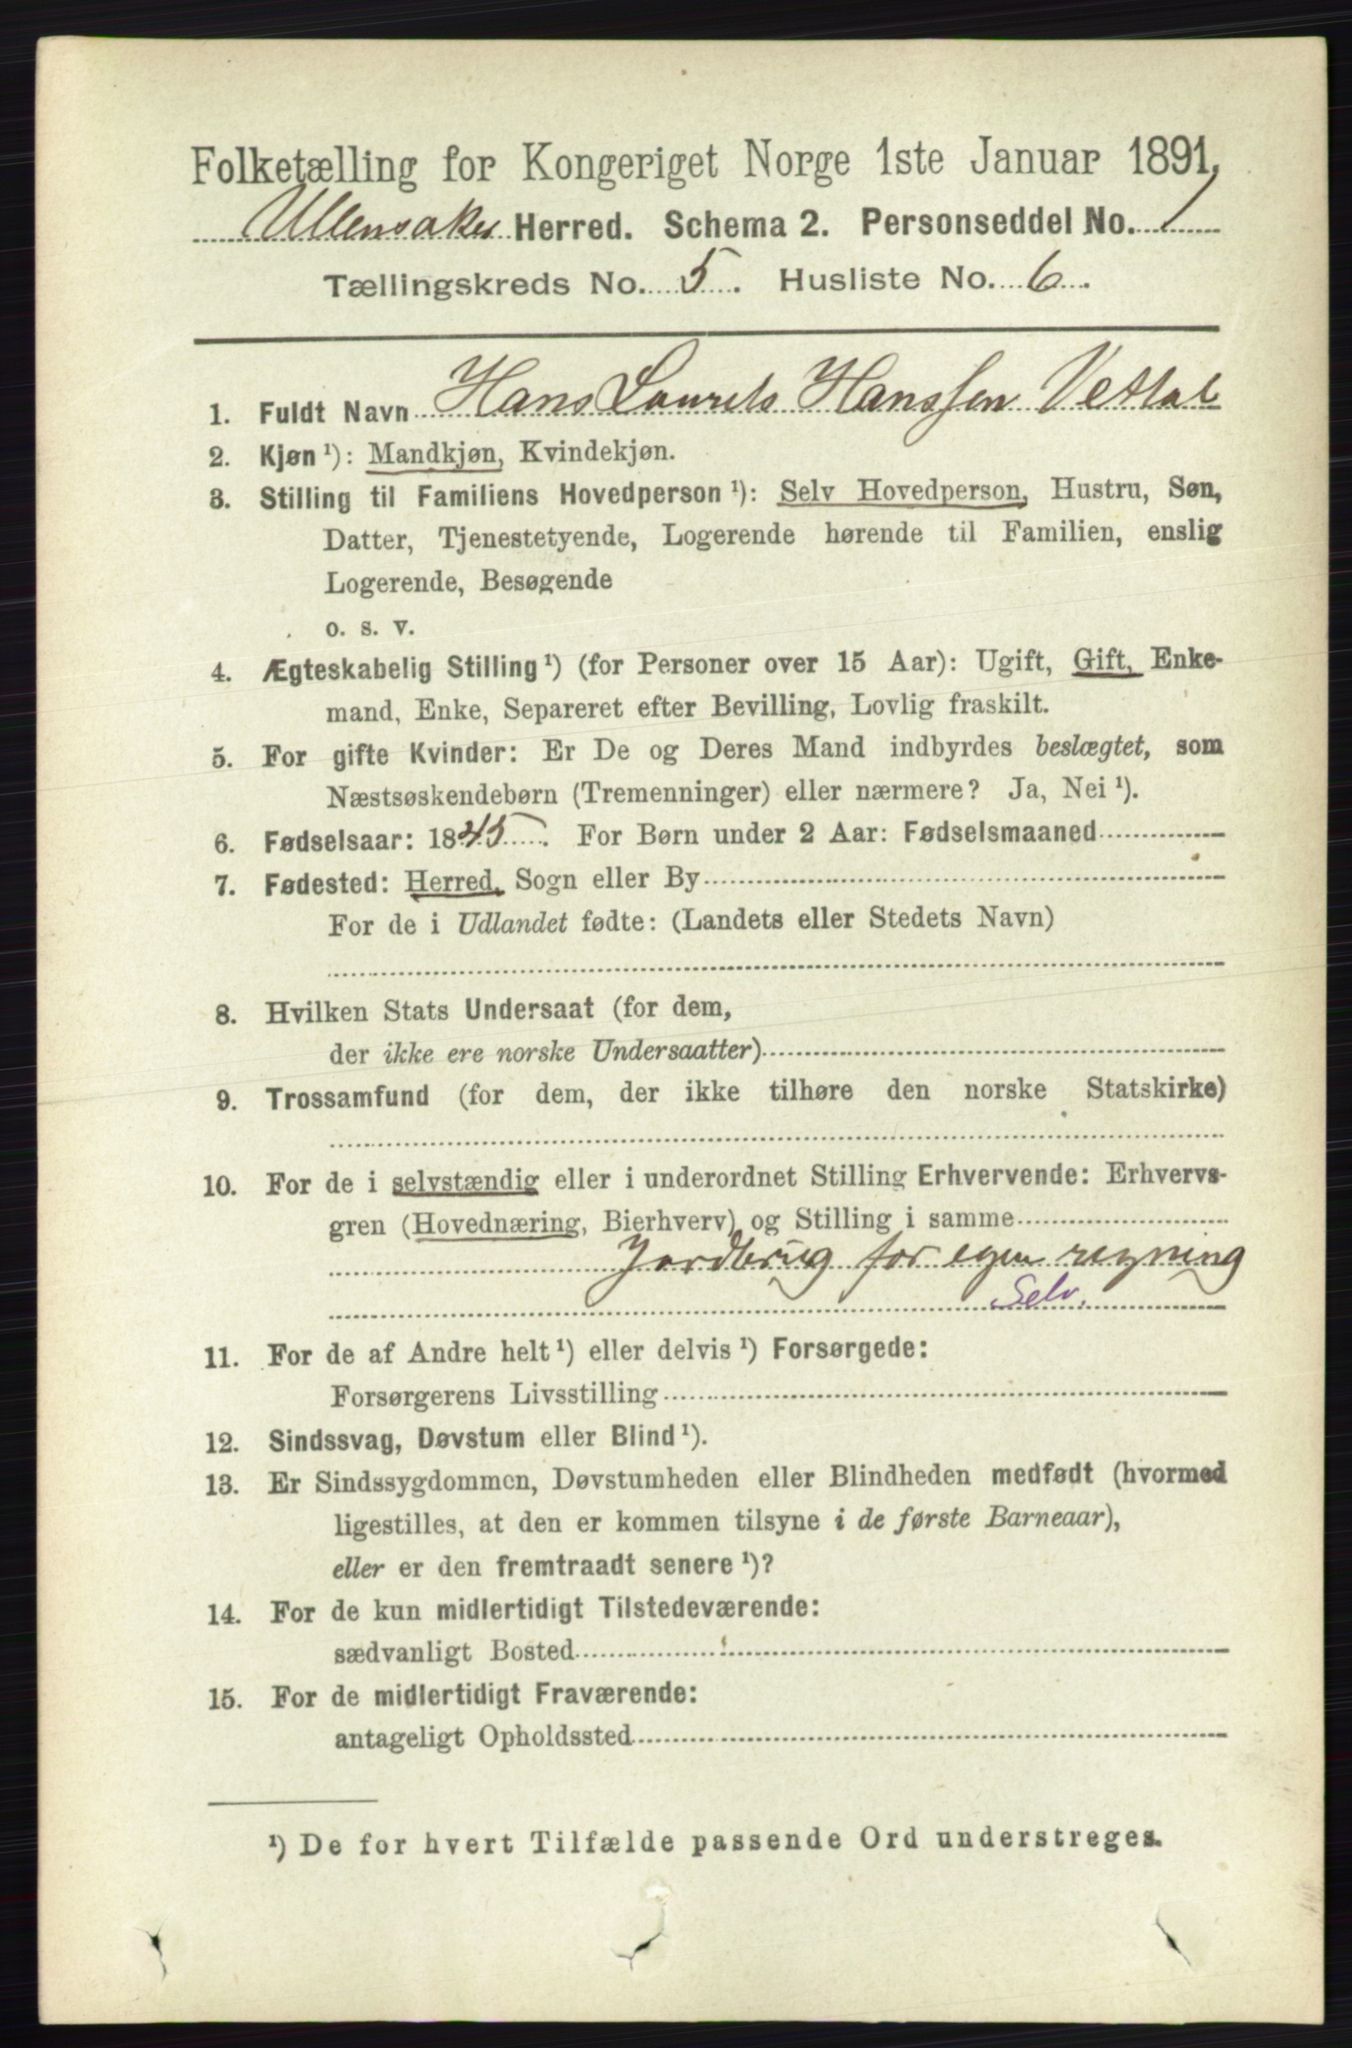 Folketælling for Kongeriget Norge 1ste Januar 1891.
Ullensaker Herred. Schema 2. Personseddel No. 1
Tællingskreds No. 5. Husliste No. 6.
1. Fuldt Navn Hans Laurits Hanssen Vettal
2. Kjøn ¹): Mandkjøn, Kvindekjøn.
3. Stilling til Familiens Hovedperson ¹): Selv Hovedperson, Hustru, Søn,
Datter, Tjenestetyende, Logerende hørende til Familien, enslig
Logerende, Besøgende
o. s. v.
4. Ægteskabelig Stilling ¹) (for Personer over 15 Aar): Ugift, Gift, Enke-
mand, Enke, Separeret efter Bevilling, Lovlig fraskilt.
5. For gifte Kvinder: Er De og Deres Mand indbyrdes beslægtet, som
Næstsøskendebørn (Tremenninger) eller nærmere? Ja, Nei ¹).
6. Fødselsaar: 1845. For Børn under 2 Aar: Fødselsmaaned
7. Fødested: Herred, Sogn eller By
For de i Udlandet fødte: (Landets eller Stedets Navn)
8. Hvilken Stats Undersaat (for dem,
der ikke ere norske Undersaatter)
9. Trossamfund (for dem, der ikke tilhøre den norske Statskirke)
10. For de i selvstændig eller i underordnet Stilling Erhvervende: Erhvervs-
gren (Hovednæring, Bierhverv) og Stilling i samme
Jordbrug for egen regning
Selv.
11. For de af Andre helt ¹) eller delvis ¹) Forsørgede:
Forsørgerens Livsstilling
12. Sindssvag, Døvstum eller Blind ¹).
13. Er Sindssygdommen, Døvstumheden eller Blindheden medfødt (hvormed
ligestilles, at den er kommen tilsyne i de første Barneaar),
eller er den fremtraadt senere ¹)?
14. For de kun midlertidigt Tilstedeværende:
sædvanligt Bosted
15. For de midlertidigt Fraværende:
antageligt Opholdssted
¹) De for hvert Tilfælde passende Ord understreges.